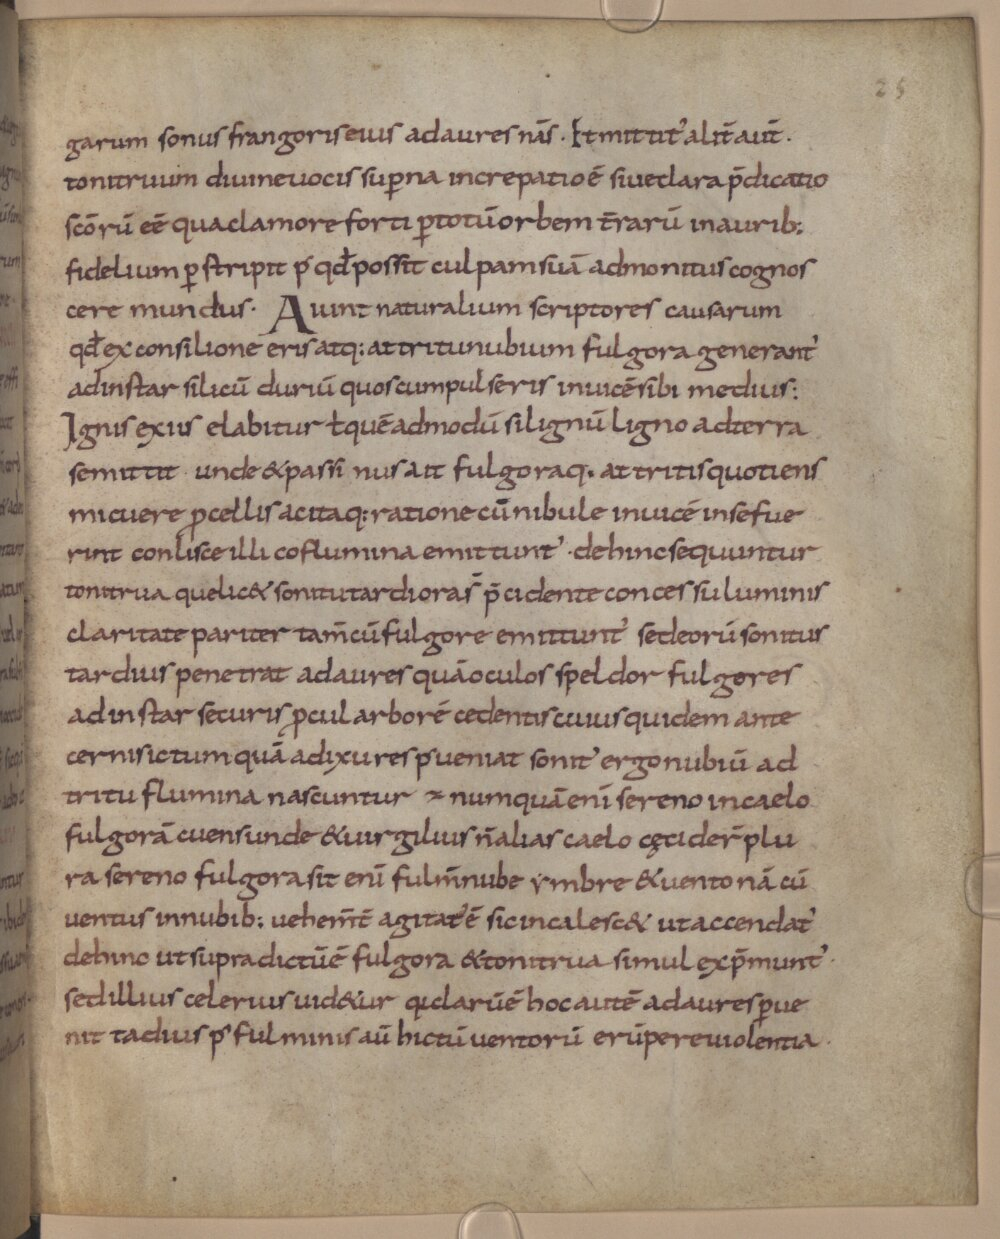 25
garum sonus frangoris eius ad aures nr̄as. Et mittit᷑ alit̄ aut̄.
tonitruum diuine uocis sup̱na increpatio ē siue clara p̄dicatio
sc̄orū eē qua clamore forti p̱ totū orbem t̄rarū in aurib;
fidelium p̱stripit p᷒ qd̄ possit culpam suā admonitus cognos
cere mundus. Aiunt naturalium scriptores causarum
qd̄ ex consilione eris atq; attritu nubium fulgora generant᷑
ad instar silicū duriū quos cum pulseris inuicē sibi medius;
Ignis ex iis elabitur ł quēadmodū si lignū ligno adterra
se mittit unde & passi nus ait fulgoraq. attritis quotiens
micuere p̱cellis acitaq; ratione cū nibule inuicē in se fue
rint conlisce illi co flumina emittunt᷑. dehinc sequuntur
tonitrua que lic& sonitu tardioras̄ p̄cidente concessu luminis
claritate pariter tam̄ cū fulgore emittunt᷑ sed eorū sonitus
tardius penetrat ad aures quā oculos speldor fulgores
ad instar securis p̱cul arborē cedentis cuius quidem ante
cernis ictum quā adixures p᷒ueniat sonit᷒ ergo nubiū ad
tritu flumina nascuntur ⁊ numquā enī sereno in caelo
fulgorā cuens unde & uirgilius n̄ alias caelo cęcider̄ plu
ra sereno fulgora sit enī fulm̄ nube ymbre & uento nā cū
uentus in nubib; uehem̄t̄ agitat᷑ ē sic incalesc& ut accendat᷑
dehinc ut supra dictū ē fulgora & tonitrua simul exp̄munt᷑.
sed illius celerius uid&ur qi clarū ē hoc autē ad aures p̱ue
nit tadius p᷒ fulminis aū hictū uentorū erūpere uiolentia.